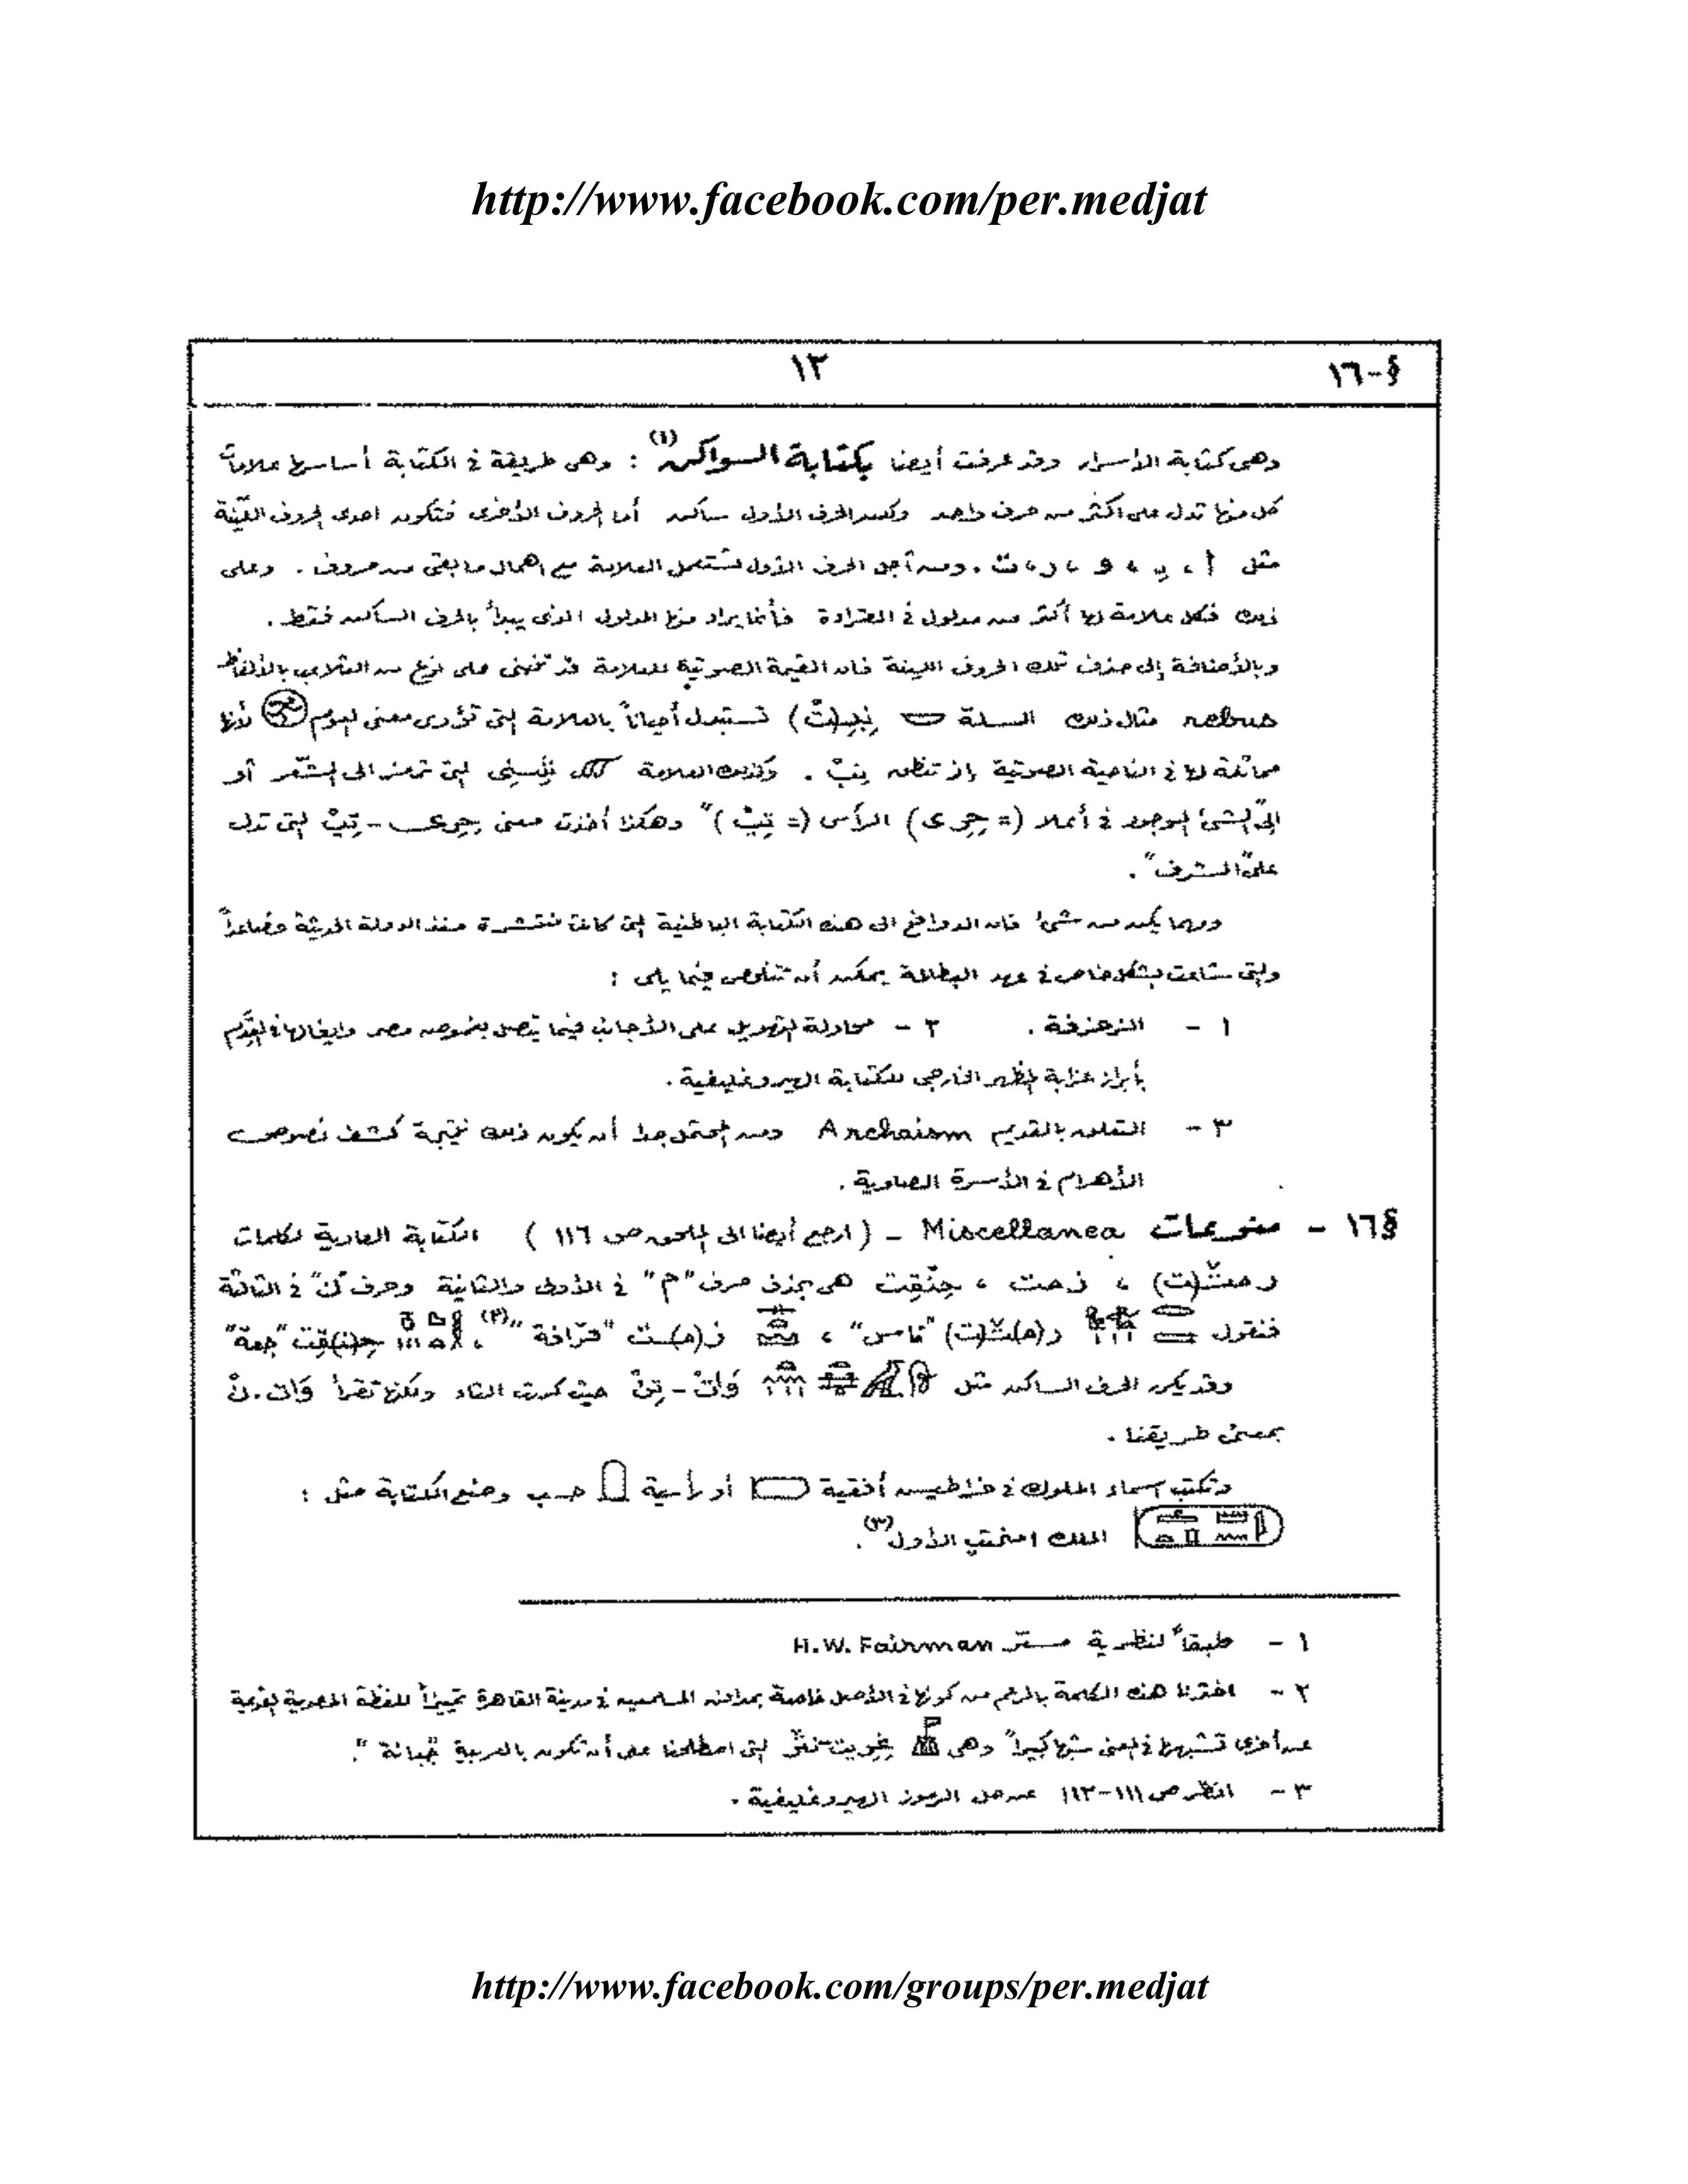 http://www.facebook.com/per.medjat
§-١٦
١٣
وهى كتابة الأسرار وقد عرفت أيضا بكتابة السواكن(١) : وهى طريقة فى الكتابة أساسها علامات
كل منها تدل على أكثر من حرف واحد ولكن الحرف الأول ساكن أما الحروف الأخرى فتكون احدى الحروف اللينة
مثل أ ، ى ، و ، ر ، ت . ومن أجل الحرف الأول تستعمل العلامة مع اهمال ما بقى من حروف . وعلى
ذلك فكل علامة لها أكثر من مدلول فى العتادة فأنما يراد منها المدلول الذى يبدأ بالحرف الساكن فقط .
وبالأضافة إلى حذف تلك الحروف اللينة فان القيمة الصوتية للعلامة قد تخفى على نوع من التلاعب بالألفاظ
rebus مثال ذلك السلة نِبِ(تْ) تستبدل أحياناً بالعلامة التى تؤدى معنى العوم لأنها
مماثلة لها فى الناحية الصوتية إذ تنطق نِبْ . وكذلك العلامة التى ترمز الى الشعر أو
إلى "الشئ الموجود فى أعلا (= حِرى) الرأس (= تِبْ)" وهكذا أخذت معنى حِرى - تِبْ التى تدل
على "الشرف" .
ومهما يكن من شئ فان الدوافع الى هذه الكتابة الباطنية التى كانت منتشرة منذ الدولة الحديثة فصاعداً
والتى شاعت بشكل خاص فى عهد البطالمة يمكن أن تتلخص فيما يلى :
١ - الزخرفة . ٢ - محاولة التهويل على الأجانب فيما يتصل بغموض مصر وايغالها فى القدم
بأبراز غرابة المظهر الخارجى للكتابة الهيروغليفية .
٣ - التعلق بالقديم Archaism ومن المحتمل جدا أن يكون ذلك نتيجة كشف نصوص
الأهرام فى الأسرة الصاوية .
§١٦ - منوعات Miscellanea - ( ارجع أيضا الى الملحق ص ١١٦ ) الكتابة العادية لكلمات
رمثّ(ت) ، زمت ، حِنْقِت هى بحذف حرف "م" فى الأولى والثانية وحرف "ن" فى الثالثة
فنقول ر(م)ثّ(ت) "ناس" ، ز(م)ـت "قرّافة"(٢) ، حِ(نْ)قِت "جعة"
وقد يكرر الحرف الساكن مثل وَاتْ - تِنْ حيث كررت التاء ولكنها تقرأ وَات.نْ
بمعنى طريقنا .
وتكتب اسماء الملوك فى خراطيش أفقية أو رأسية حسب وضع الكتابة مثل :
الملك امنحتب الأول(٣) .
١ - طبقاً لنظرية مستر H.W. Fairman
٢ - اخترنا هذه الكلمة بالرغم من كونها فى الأصل خاصة بمدافن المسلمين فى مدينة القاهرة تمييزاً للفظة المصرية القديمة
عن أخرى تشبهها فى المعنى شبهاً كبيراً وهى التى اصطلحنا على أن تكون بالعربية "جبانة" .
٣ - انظر ص ١١١-١١٣ عن حل الرموز الهيروغليفية .
http://www.facebook.com/groups/per.medjat